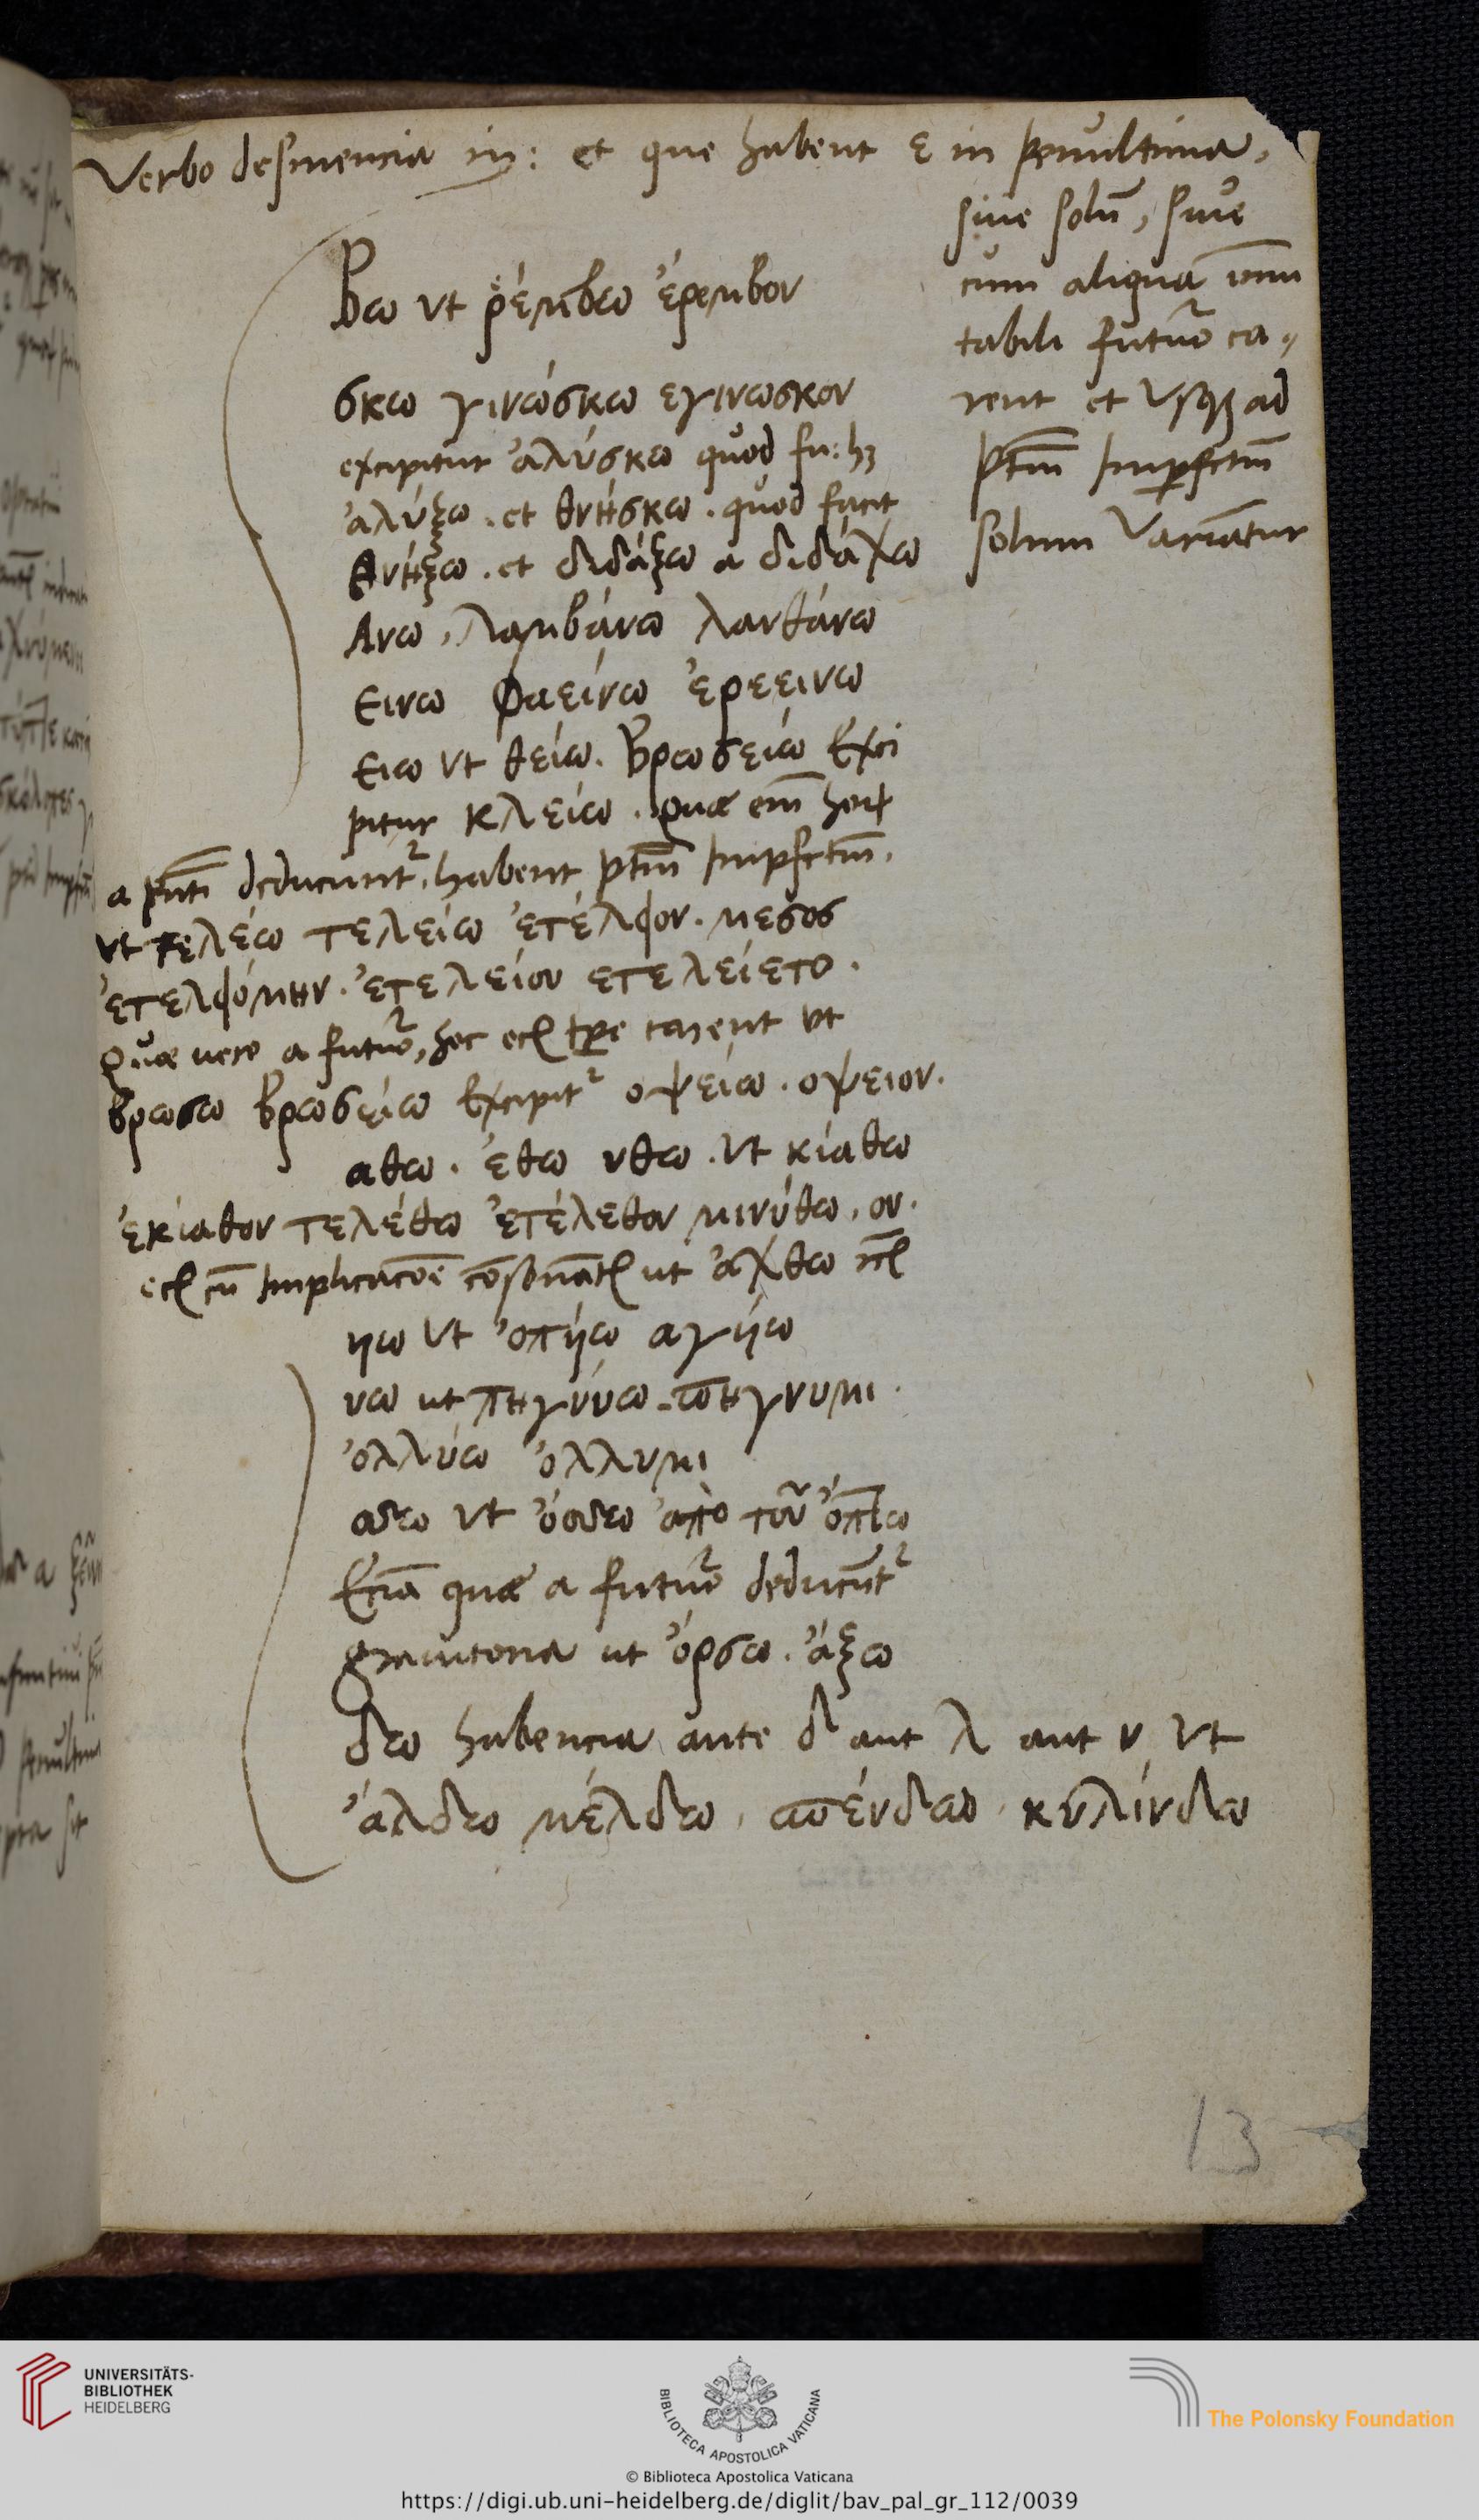 Verbo desinencia in: et que habent ε in penultima,
sive solũ, sive
cum aliqua
tabili futuro ca„
rent et usqꝫ ad
ptm̃ imperfctm̃
solum variãtur
βω vt ῥέμβω ἔρεμβον
σκω γινώσκω εγινωσκον
excipitur ἀλύσκω quod fu: hꝫ
ἀλύξω . et θνήσκω . quod facit
θνήξω . et διδάξω a διδάχω
Ανω , λαμβάνω λανθάνω
εινω φαείνω ἐρεεινω
ειω vt θείω. βρωσείω Exci
pitur κλείω . quæ em̃
a pñti deducunt᷑, habent ptm̃ impfctm̃.
vt τελέω τελείω ἐτέλουν . μεσος
ἐτελούμην . ἐτελείον ετελείετο .
Quæ vero a futuro, hoc carent vt
βρωσω βρωσείω Excipit᷑ οψείω . οψειον.
αθω . έθω υθω . vt κίαθω
ἐκίαθον τελέθω ἐτέλεθον μινύθω . ον.
cũ implicacõe ut ἄχθω
ηω vt ὀπήω αγήω
υω ut πηγνύω . πήγνυμι .
ὀλλύω ὄλλυμι
vt ἀπὸ τοῦ
Eciã quæ a futuro deducũt᷑
grauitona ut ὄρσω . ἄξω
δω habencia ante δ aut λ aut ν vt
ἄλδω μέλδω , σπένδω , κυλίνδω
13
UNIVERSITÄTS-
BIBLIOTHEK
HEIDELBERG
BIBLIOTECA APOSTOLICA VATICANA
The Polonsky Foundation
© Biblioteca Apostolica Vaticana
https://digi.ub.uni-heidelberg.de/diglit/bav_pal_gr_112/0039